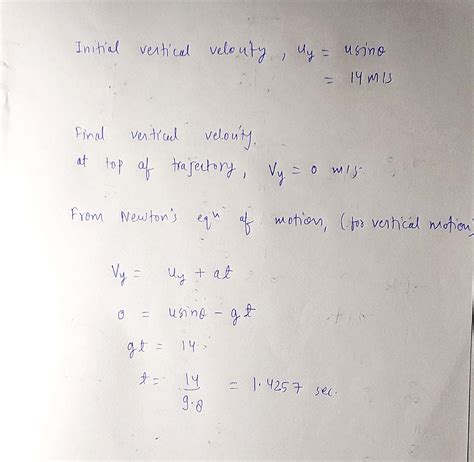 Initial vertical velouty, uy = usinθ
= 14 m/s
Final vertical velouty.
at top of trajectory, Vy = 0 m/s.
From Newton's eqn of motion, (for vertical motion)
Vy = uy + at
0 = usinθ - gt
gt = 14
t = 14/9.8 = 1.4257 sec.